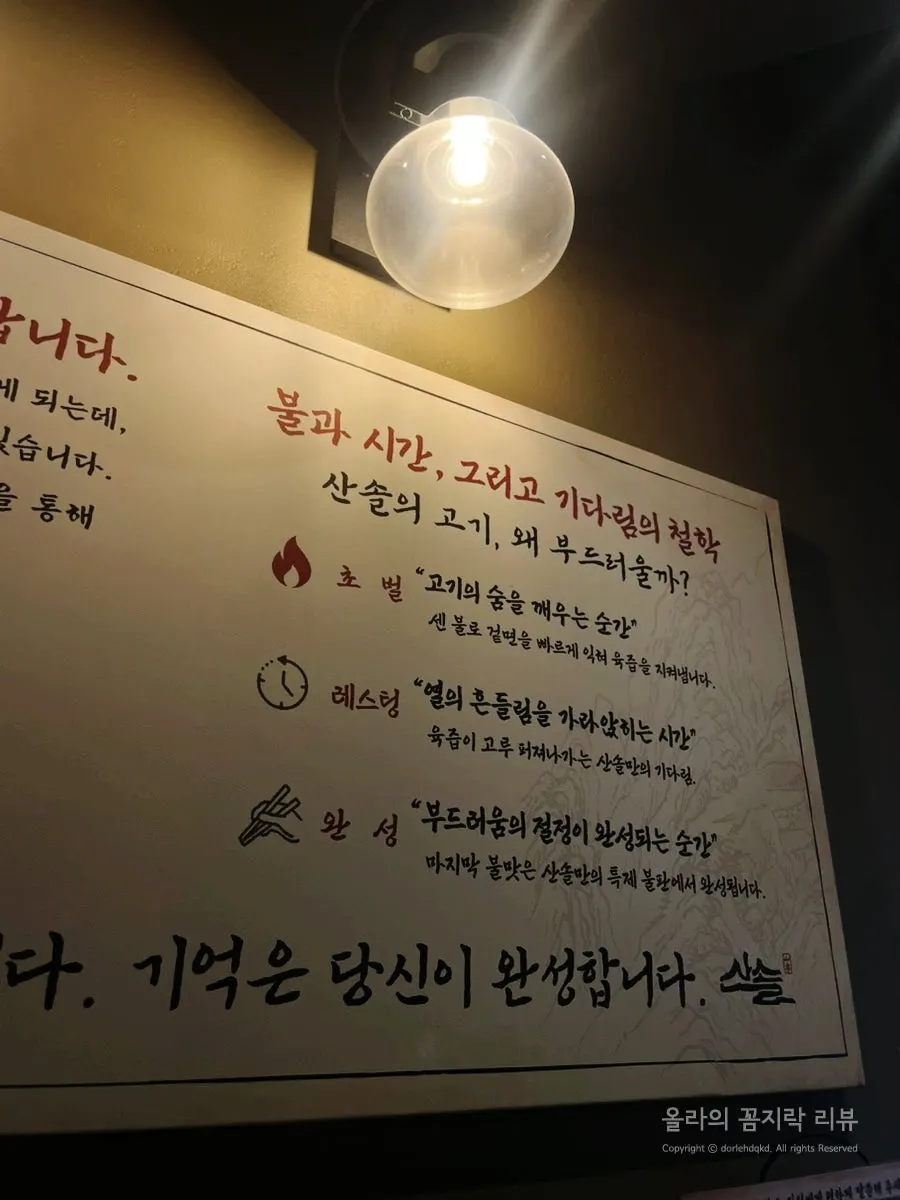 합니다.
게 되는데,
있습니다.
을 통해
불과 시간, 그리고 기다림의 철학
산솔의 고기, 왜 부드러울까?
초 벌 “고기의 숨을 깨우는 순간”
센 불로 겉면을 빠르게 익혀 육즙을 지켜냅니다.
레스팅 “열의 흔들림을 가라앉히는 시간”
육즙이 고루 퍼져나가는 산솔만의 기다림.
완 성 “부드러움의 절정이 완성되는 순간”
마지막 불맛은 산솔만의 특제 불판에서 완성됩니다.
다. 기억은 당신이 완성합니다. 산솔
올라의 꼼지락 리뷰
Copyright ⓒ dorlehdqkd. All rights Reserved